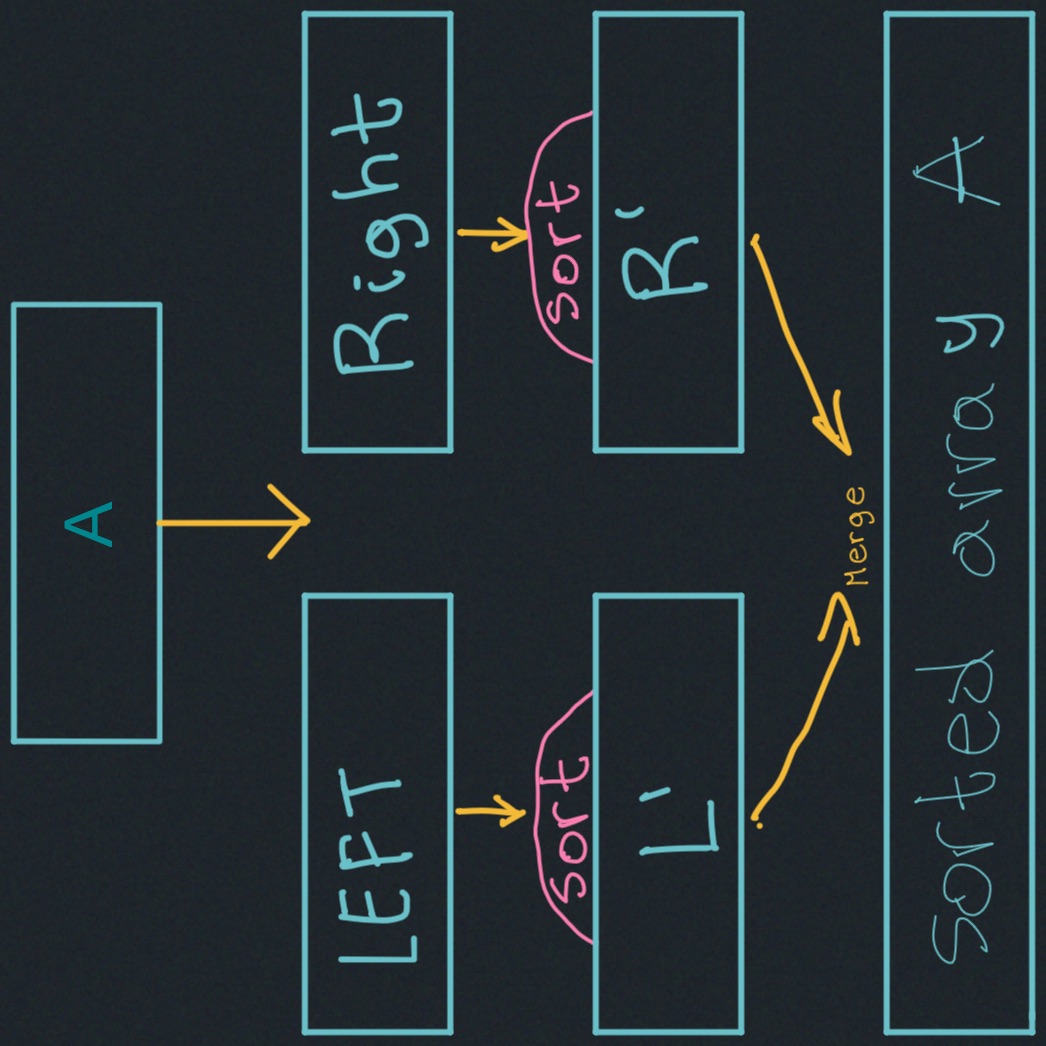 A
LEFT
Right
sort
sort
L'
R'
Merge
sorted array A